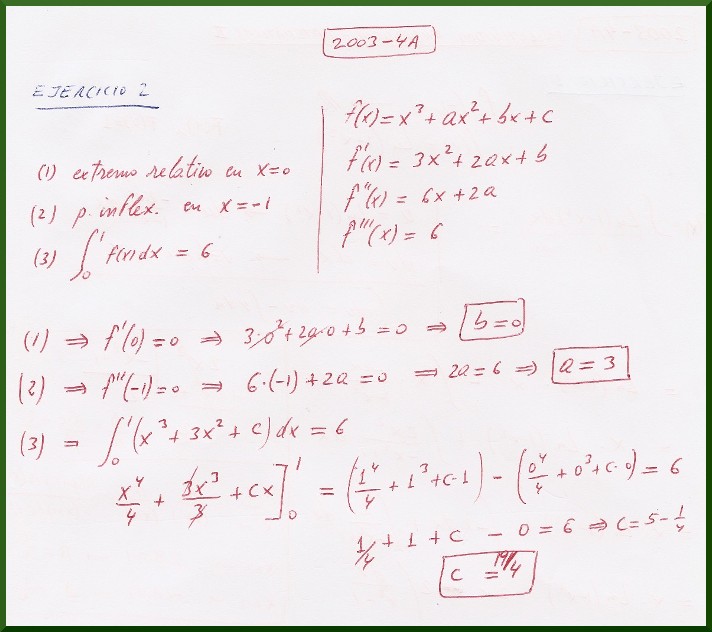 2003-4A
EJERCICIO 2
(1) extremo relativo en x=0
(2) p. inflex. en x=-1
(3) ∫₀¹ f(x)dx = 6
f(x)=x³+ax²+bx+c
f'(x)= 3x²+2ax+b
f''(x)= 6x+2a
f'''(x)= 6
(1) ⇒ f'(0)=0 ⇒ 3·0²+2a·0+b=0 ⇒ b=0
(2) ⇒ f'''(-1)=0 ⇒ 6·(-1)+2a=0 ⇒ 2a=6 ⇒ a=3
(3) = ∫₀¹(x³+3x²+c)dx=6
x⁴/4 + 3x³/3 + cx]₀¹ = (1⁴/4+1³+c·1) - (0⁴/4+0³+c·0) = 6
1/4+1+c - 0=6 ⇒ c=5-1/4
c = 19/4